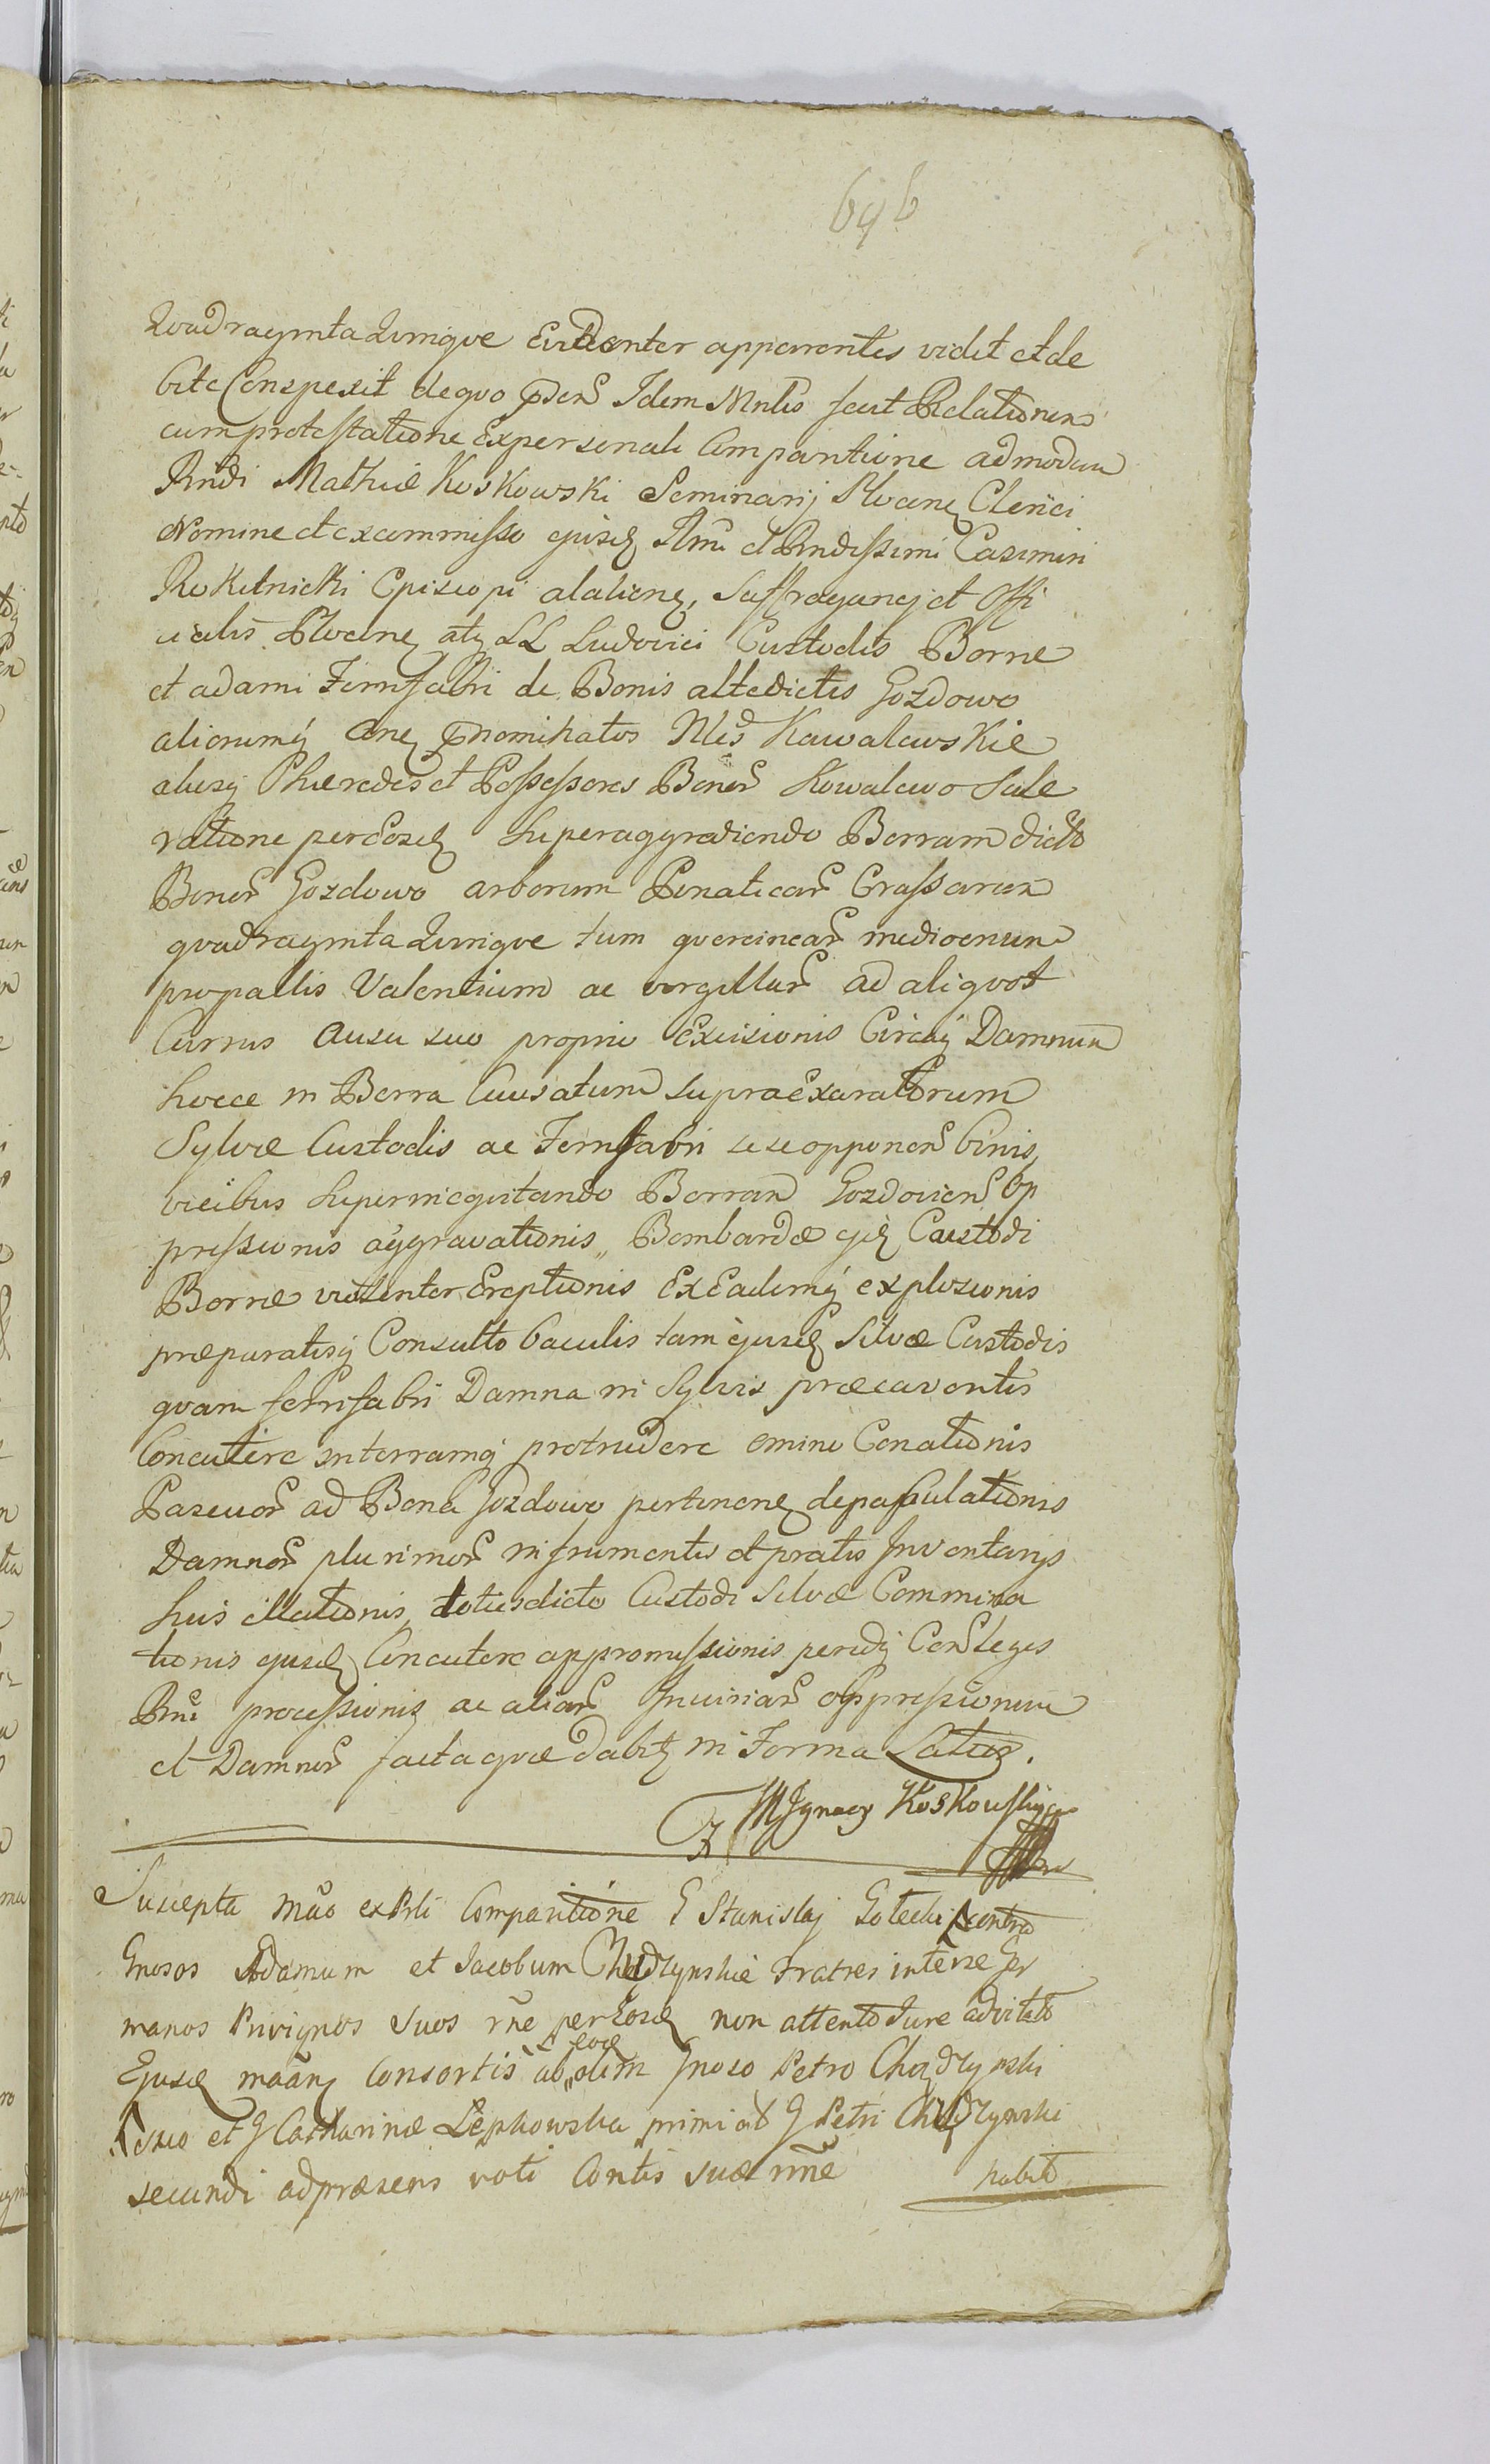 696
Quadraginta Quinque Evidenter apparentes vidit et de
bite Conspexit de quo Idem Mnlis fecit Relationem
cum protestatione Ex personali Comparitione admodum
Rndi Mathiæ Koskowski Seminarij Plocen Clerici
Nomine et ex commisso ejusd Illmi et Rndissimi Casimiri
Rokitnicki Episcopi alalien, Suffraganej et Offi
cialis Plocen atq LL Ludovici Custodis Borræ
et adami Ferrifabri de Bonis altedictis Gozdowo
aliorumq Cne pnominatos Nles Kawalewskie
aliosq Phæredes et Possessores Bonor Kowalewo Sale
ratione percos superaggrediendo Borram dicto
Bonor Gozdowo arborum Pinaticar Crassarum
quadraginta Quinque tum quercinear mediocrium
pro pallis Valentium ac virgillar ad aliquot
Currus Ausu suo proprio Excisionis Circaq Damnum
hocce in Borra Causatum supra Exaratorum
Sylvæ Custodis ac Ferrifabri sese opponen binis
vicibus superinequitando Borram Gozdovien Op
pressionis aggravationis Bombardæ ejd Custodi
Borræ violenter Ereptionis Ex Eademq explosionis
præparatisq Consulto baculis tam ejusd Silvæ Custodis
quam ferrifabri Damna in Sylvis præcaventis
Concutere in terramq protrudere omnino Conationis
Pascuor ad Bona Gozdowo pertinen depasculationis
Damnor plurimor in frumentis et pratis Inventarijs
suis illationis, totiesdicto Custodi Silvæ Commina
tionis ejusd Concutere appromissionis Con Leges
Rni processionis ac aliar Injuriar oppressionum
et Damnor facta quæ dabit in Forma Latius.
MIgnacy Koskowski
Suscepta Mno ex Prli Comparitione G Stanislaj contra
Gnosos Adamum et Jacobum Chądzynskie Fratres inter se Ger
manos Privignos suos rne percos non attento Jure advitali
Ejusd Consortis ab olim Gnoso Petro Chądzynski
suo et G Catharinæ Lępkowska primi ac G Petri Chądzynski
secundi ad præsens voti Contis suæ rne habito